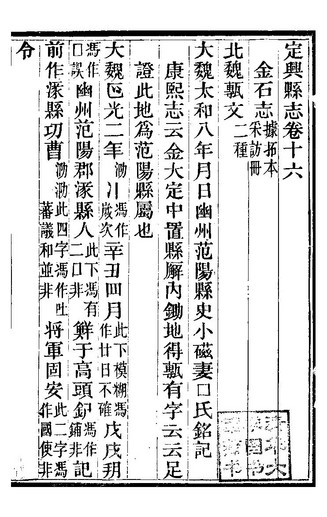 定興縣志卷十六
金石志 據拓本采訪冊
北魏甎文 二種
大魏太和八年月日幽州范陽縣史小磁妻口氏銘記
康熙志云金大定中置縣廨內鋤地得甎有字云云足
證此地為范陽縣屬也
大魏光二年泐川馮作歲次辛丑四月此下模糊馮作廿日不確戊戌玥
馮作口誤幽州范陽郡涿縣人此下馮有二口非鮮于高頭馮作鋪非記
前作涿縣功曹泐泐此四字馮作吐蕃議和並非將軍固安此二字馮作國使非
令